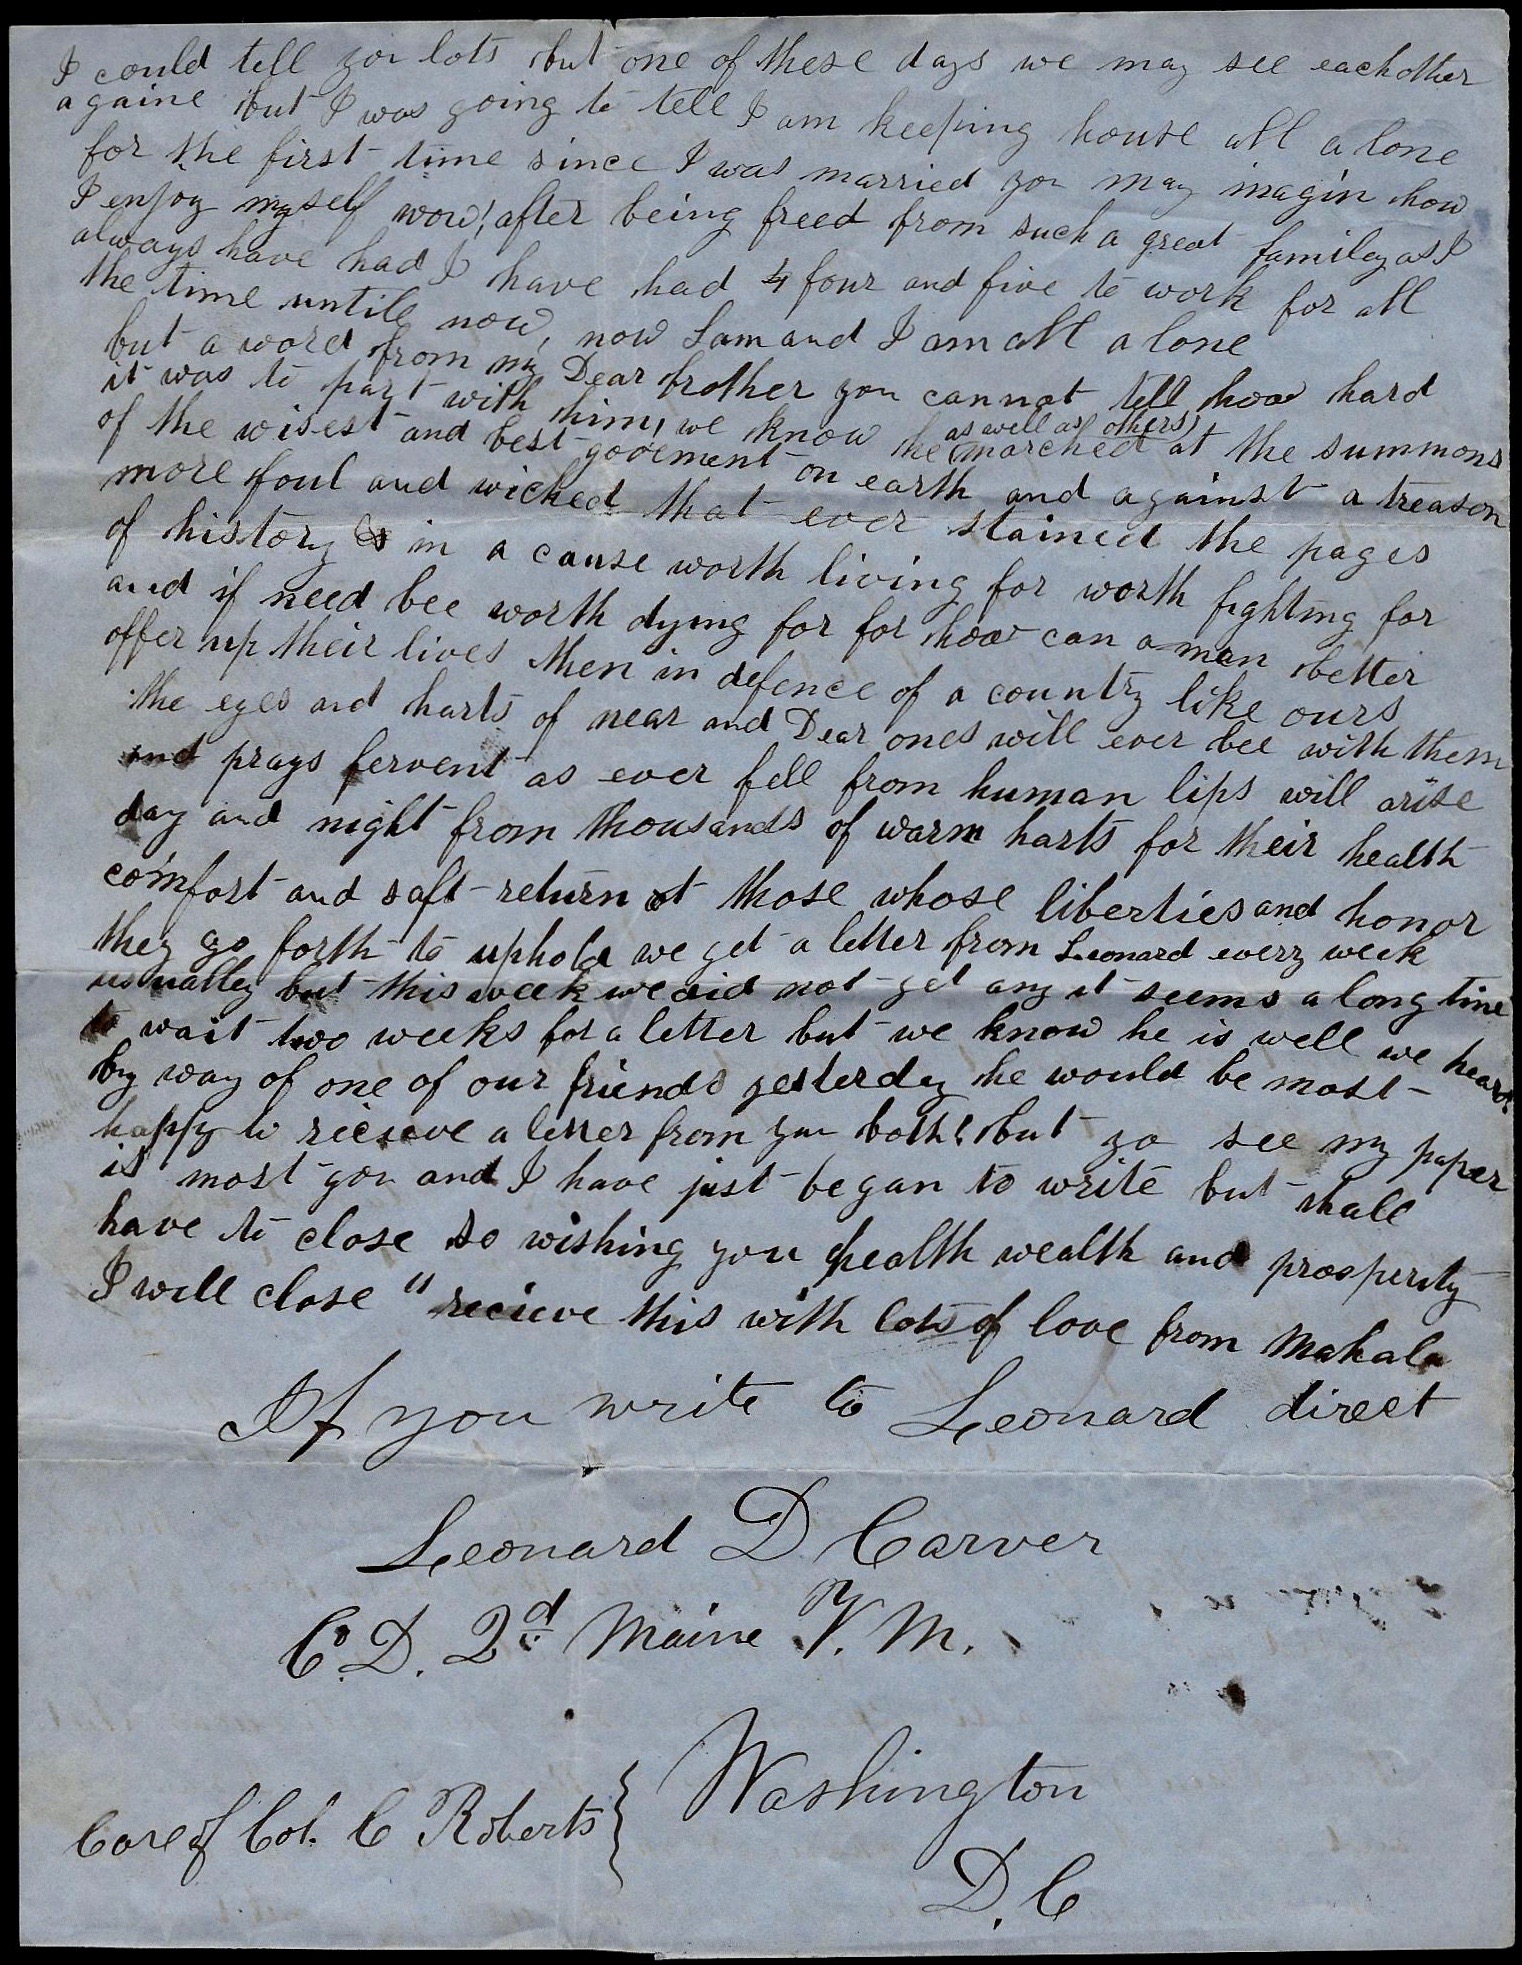 I could tell you lots but one of these days we may see eachother
againe but I was going to tell I am keeping house all alone
for the first time since I was married you may imagin how
I enjoy myself wow! after being freed from such a great familey as I
always have had I have had 4 four and five to work for all
the time untill now, now Sam and I am all alone
but a word from my Dear brother you cannot tell how hard
it was to part with him, we know he (as well as others) marched at the summons
of the wisest and best goverment on earth and against a treason
more foul and wicked that ever stained the pages
of history in a cause worth living for worth fighting for
and if need bee worth dying for for how can a man better
offer up their lives then in defence of a country like ours
the eyes and harts of near and Dear ones will ever bee with them
and prays fervent as ever fell from human lips will arise
day and night from thousands of warm harts for their health
comfort and saft return those whose liberties and honor
they go forth to uphold we get a letter from Leonard every week
usualley but this week we did not get any it seems a long time
to wait two weeks for a letter but we know he is well we heard
by way of one of our friends yesterdey he would be most
happy to recieve a letter from you both! but yo see my paper
is most gon and I have just began to write but shall
have to close so wishing you health wealth and prosperity
I will close " recieve this with lots of love from Mahala
If you write to Leonard direct
Leonard D Carver
Co D. 2d Maine V. M.
Washington
Care of Col. C Roberts }
D. C